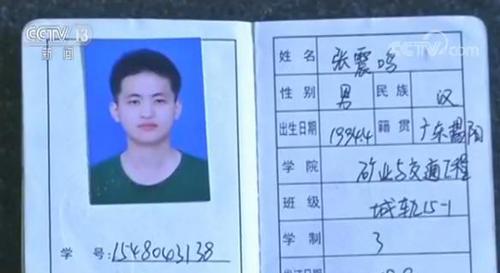 CCTV 13
新闻
CCTV.com
姓名 张震鸣
性别 男 民族 汉
出生日期 1994.4 籍贯 广东揭阳
学院 矿业与交通工程
班级 城轨15-1
学制 3
学号:1548043138